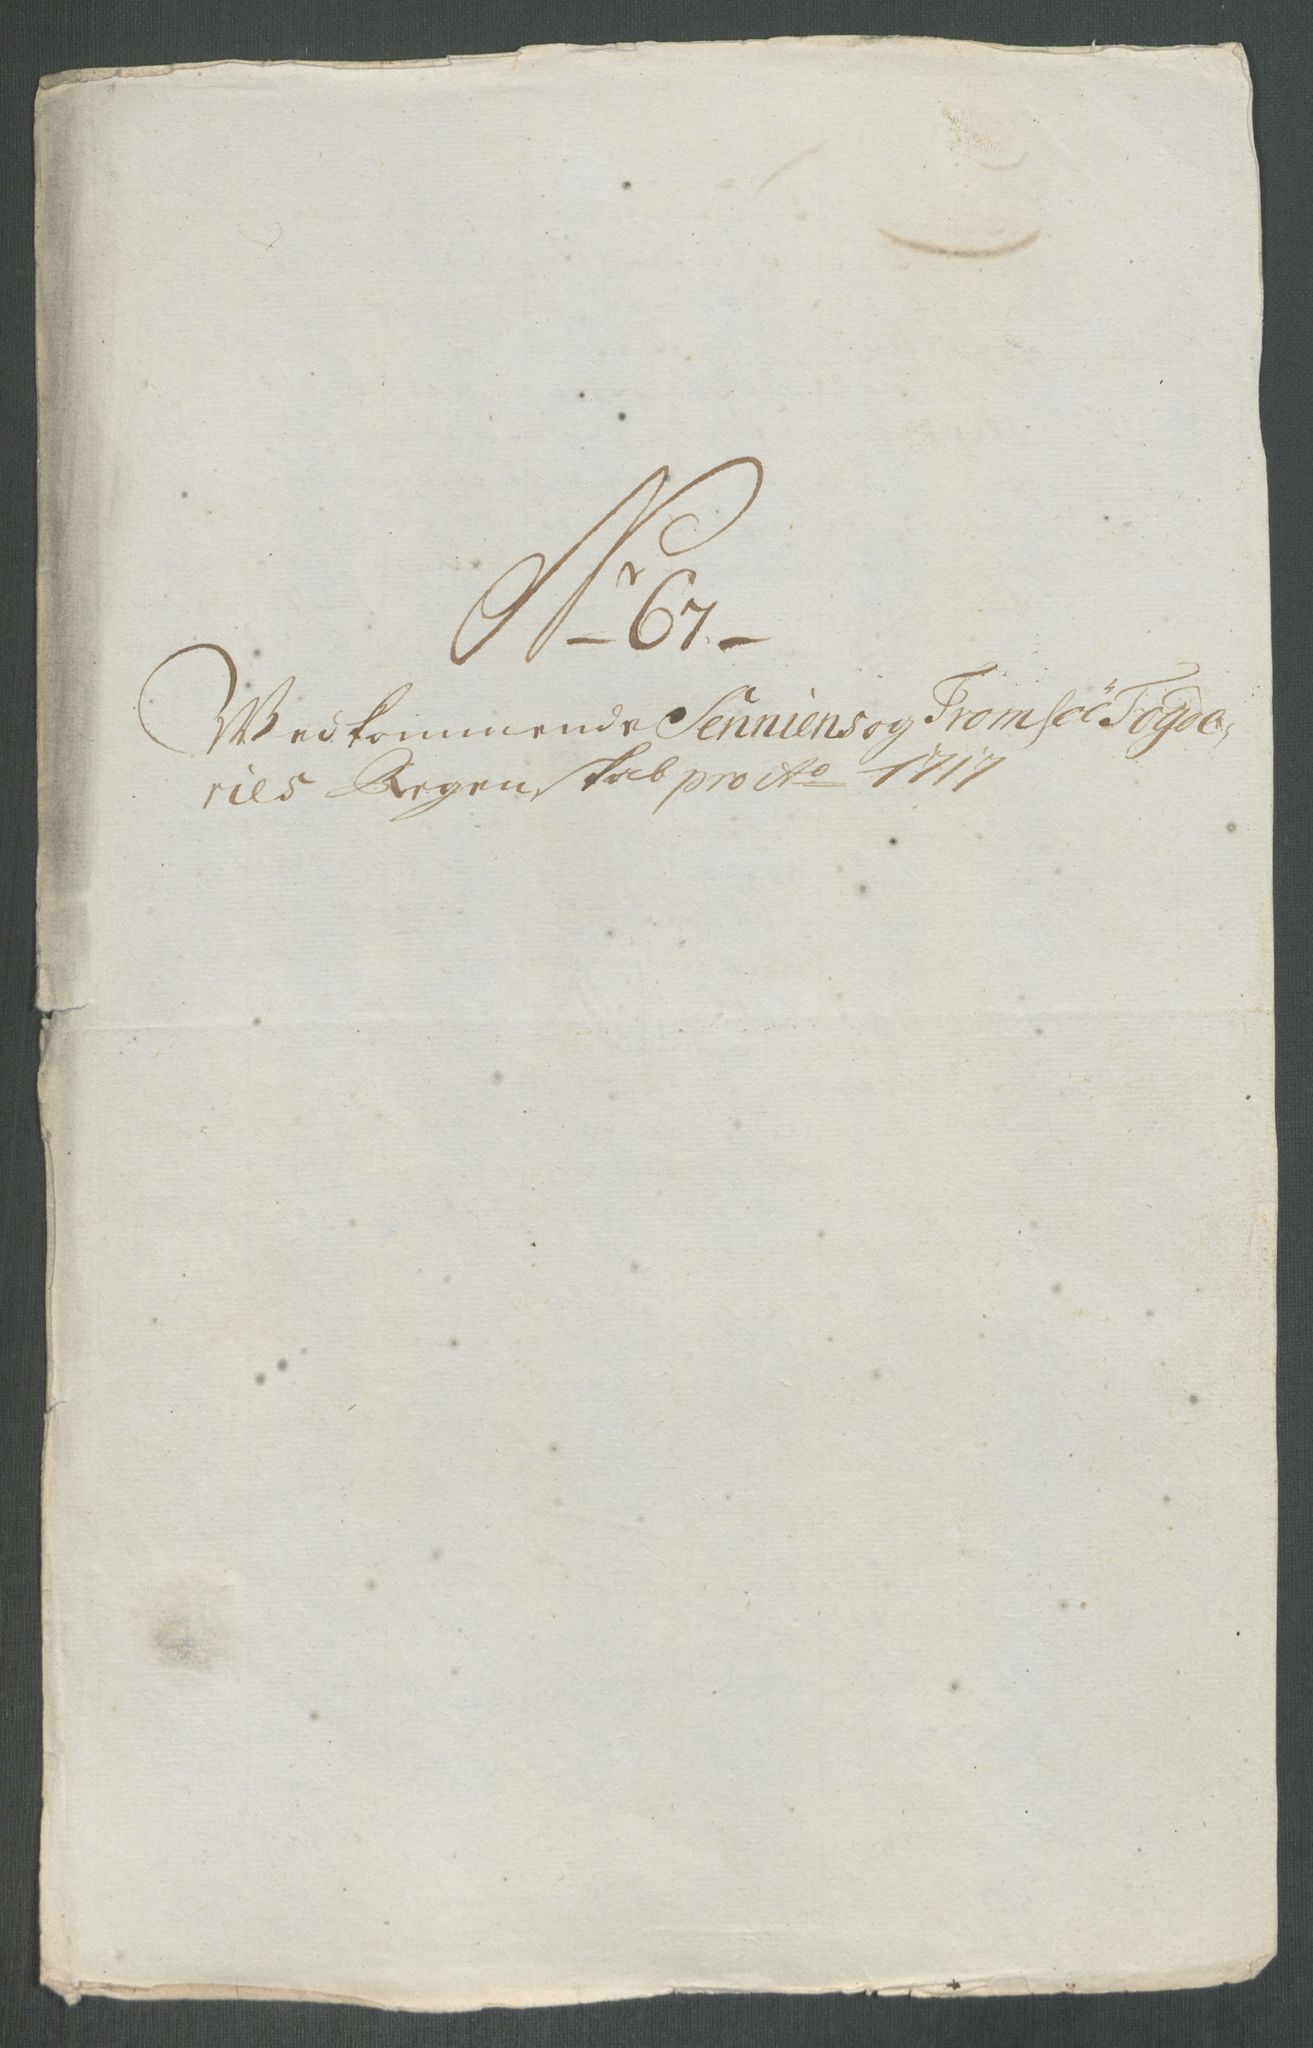 Nr 67.
Wedkommende Senniens og Tromsöe Fogde,
ries Regenskab pro Ao 1717